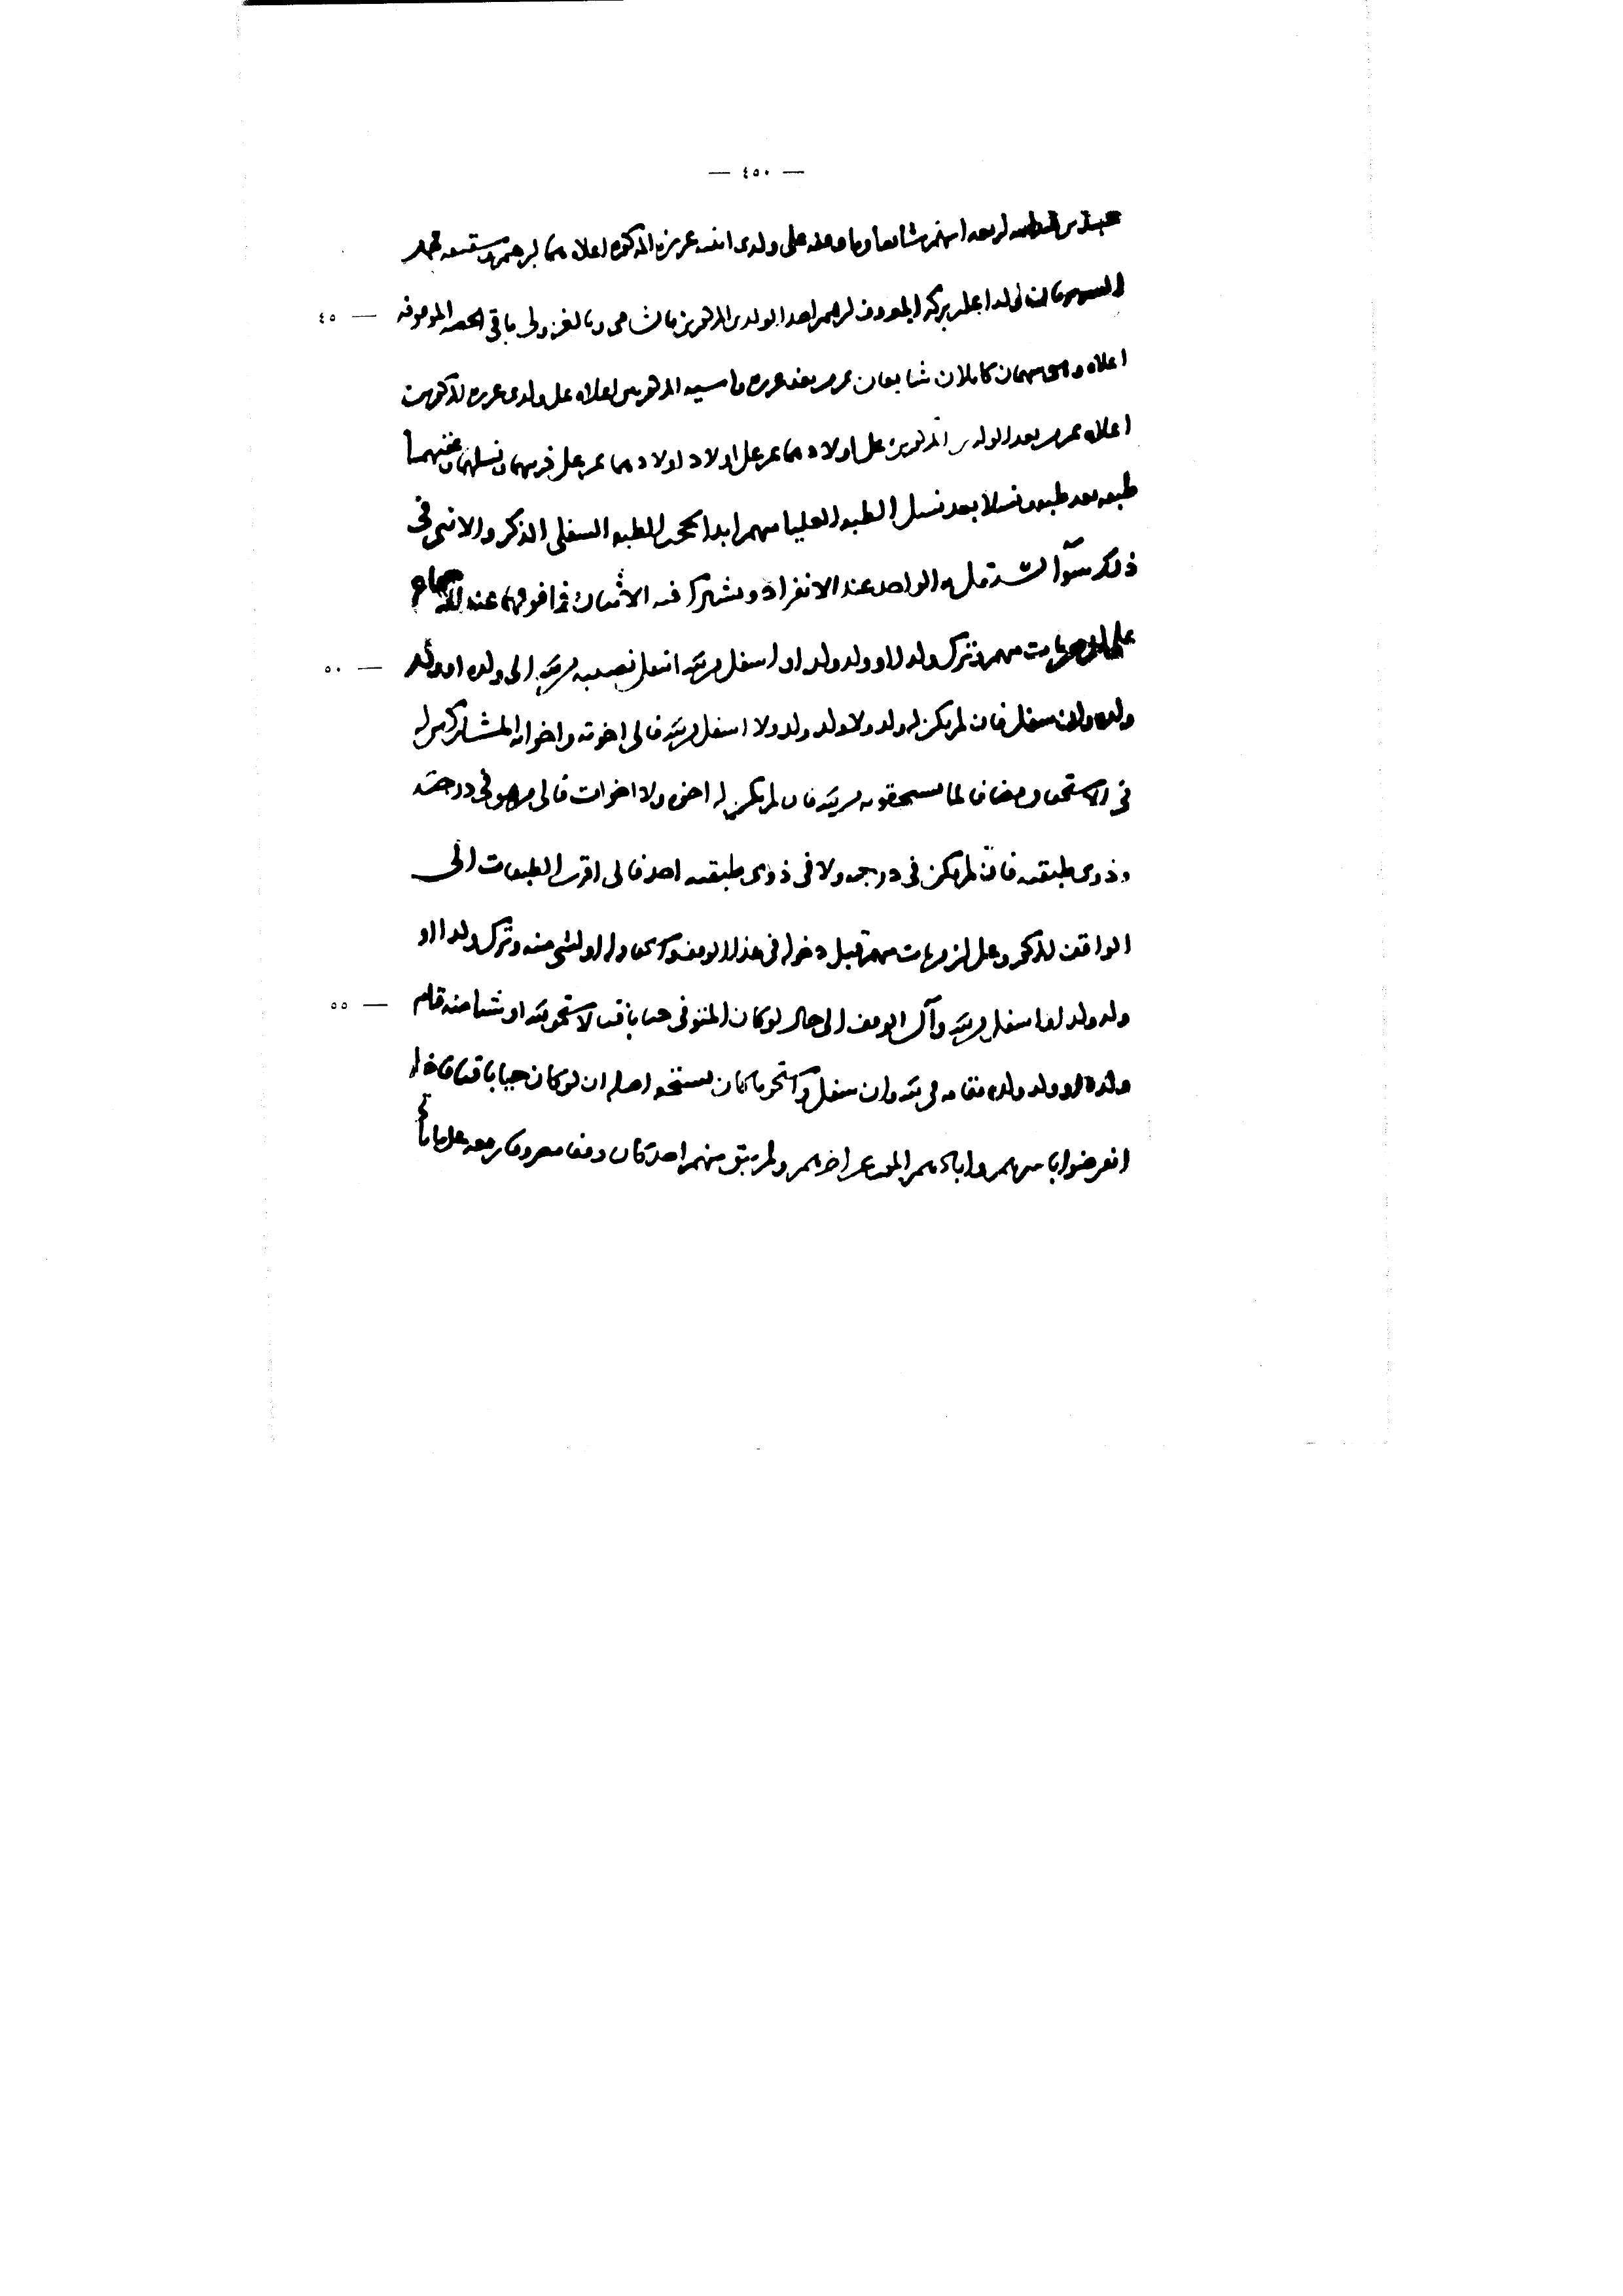 — ٤٥٠ —
اسهم شايعا وما وقفه على ولدى عزيزه المذكوره اعلاه هما ابرهيم وشقيقه محمد
بركه المعروف ابرهيم احد الولدى المذكورين باقى الحصه الموقوفه
٤٥ —
اعلاه وهى سهمان كاملان شايعان من بعد عزيزه المذكورين اعلاه على ولدى عزيزه المذكورين
اعلاه ثم من بعد الولدين المذكورين على اولادهما ثم على اولاد اولادهما ثم على ذريتهما ونسلهما وعقبهما
طبقه بعد طبقه ونسلا بعد نسل الطبقه العليا منهم ابدا تحجب الطبقه السفلى الذكر والانثى فى
ذلك سوآ يستقل به الواحد عند الانفراد ويشترك فيه الاثنان فما فوقهما عند الاجتماع
على ان من مات منهم وترك ولدا او ولد ولد او اسفل من ذلك انتقل نصيبه من ذلك الى ولده او ولد
٥٠ —
ولده وان سفل فان لم يكن له ولد ولا ولد ولد ولا اسفل من ذلك فالى اخوته واخواته المشاركين له
فى الاستحقاق مضافا لما يستحقونه من ذلك فان لم يكن له اخوه ولا اخوات فالى من هو فى درجته
وذوى طبقته فان لم يكن فى درجته ولا فى ذوى طبقته احد فالى اقرب الطبقات الى
الواقف المذكور وعلى ان من مات منهم قبل دخوله فى هذا الوقف واستحقاقه له او لشى منه وترك ولدا او
ولد ولد او اسفل من ذلك وآل الوقف الى حال لو كان المتوفى حيا باقيا لاستحق ذلك او شيا منه قام
٥٥ —
ولده او ولد ولده مقامه فى ذلك وان سفل واستحق ما كان يستحقه اصله ان لو كان حيا باقيا فاذا
انقرضوا باسرهم وابادهم الموت عن اخرهم ولم يبق منهم احد كان وقفا مصروفا ريعه على